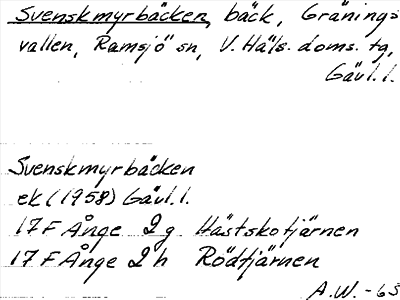 Svenskmyrbäcken, bäck, Gränings-
vallen, Ramsjö sn, V. Häls. doms. tg,
Gävl. l.
Svenskmyrbäcken
ek (1958) Gävl. l.
17 F Ånge 2g Hästskotjärnen
17 F Ånge 2h Rödtjärnen
A.W. -63